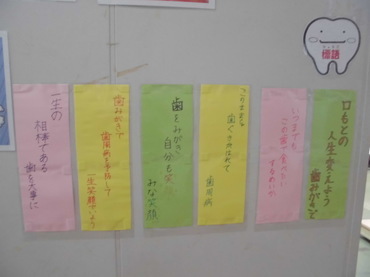 標語
口もとの
人生変えよう
歯みがきで
いつまでも
この歯で食べたい
歯ぐき
歯周病
歯をみがき
自分も笑顔
みな笑顔
歯みがきで
歯周病を予防して
一生笑顔でいよう
一生の
相棒である
歯を大事に